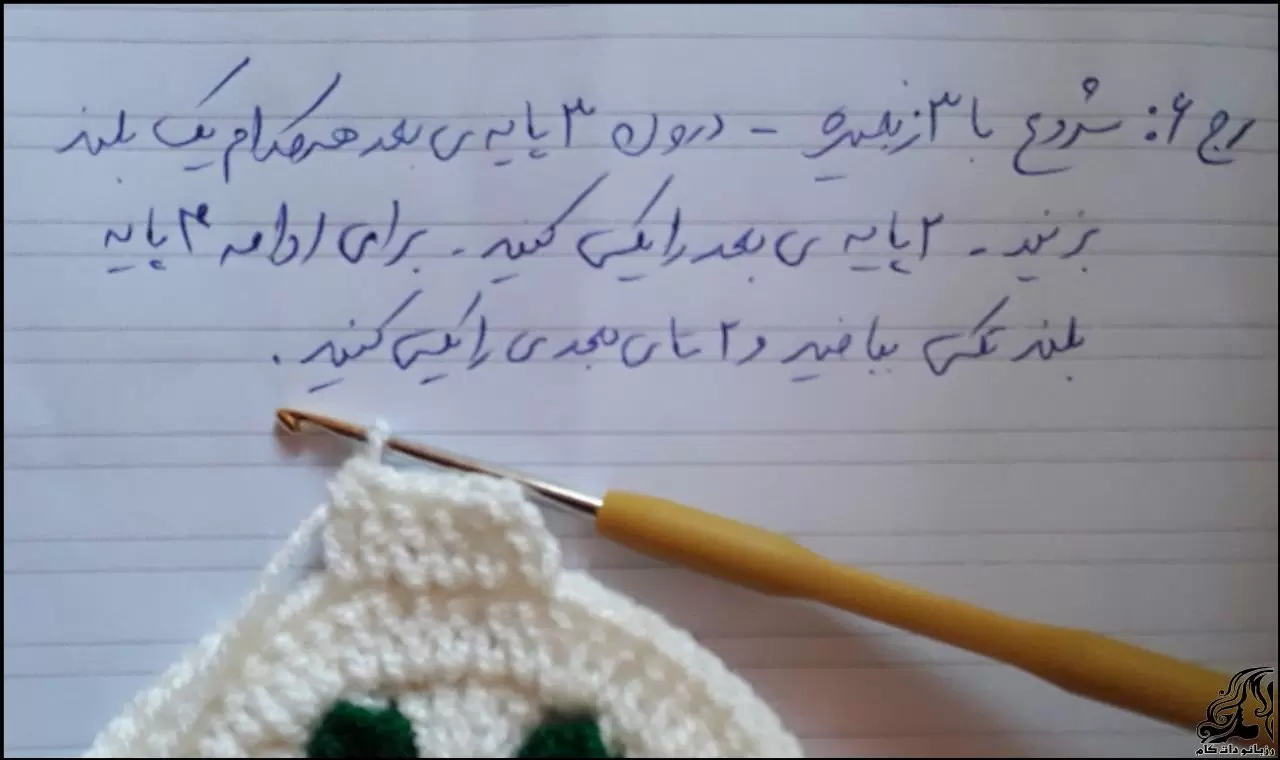 رج ۶: شروع با ۳ زنجیره - درون ۳ پایه ی بعد هرکدام یک بلند
بزنید - ۲ پایه ی بعد را یکی کنید - برای ادامه ۴ پایه
بلند تکی ببافید و ۲ تای بعدی را یکی کنید.
رزبانو دات کام